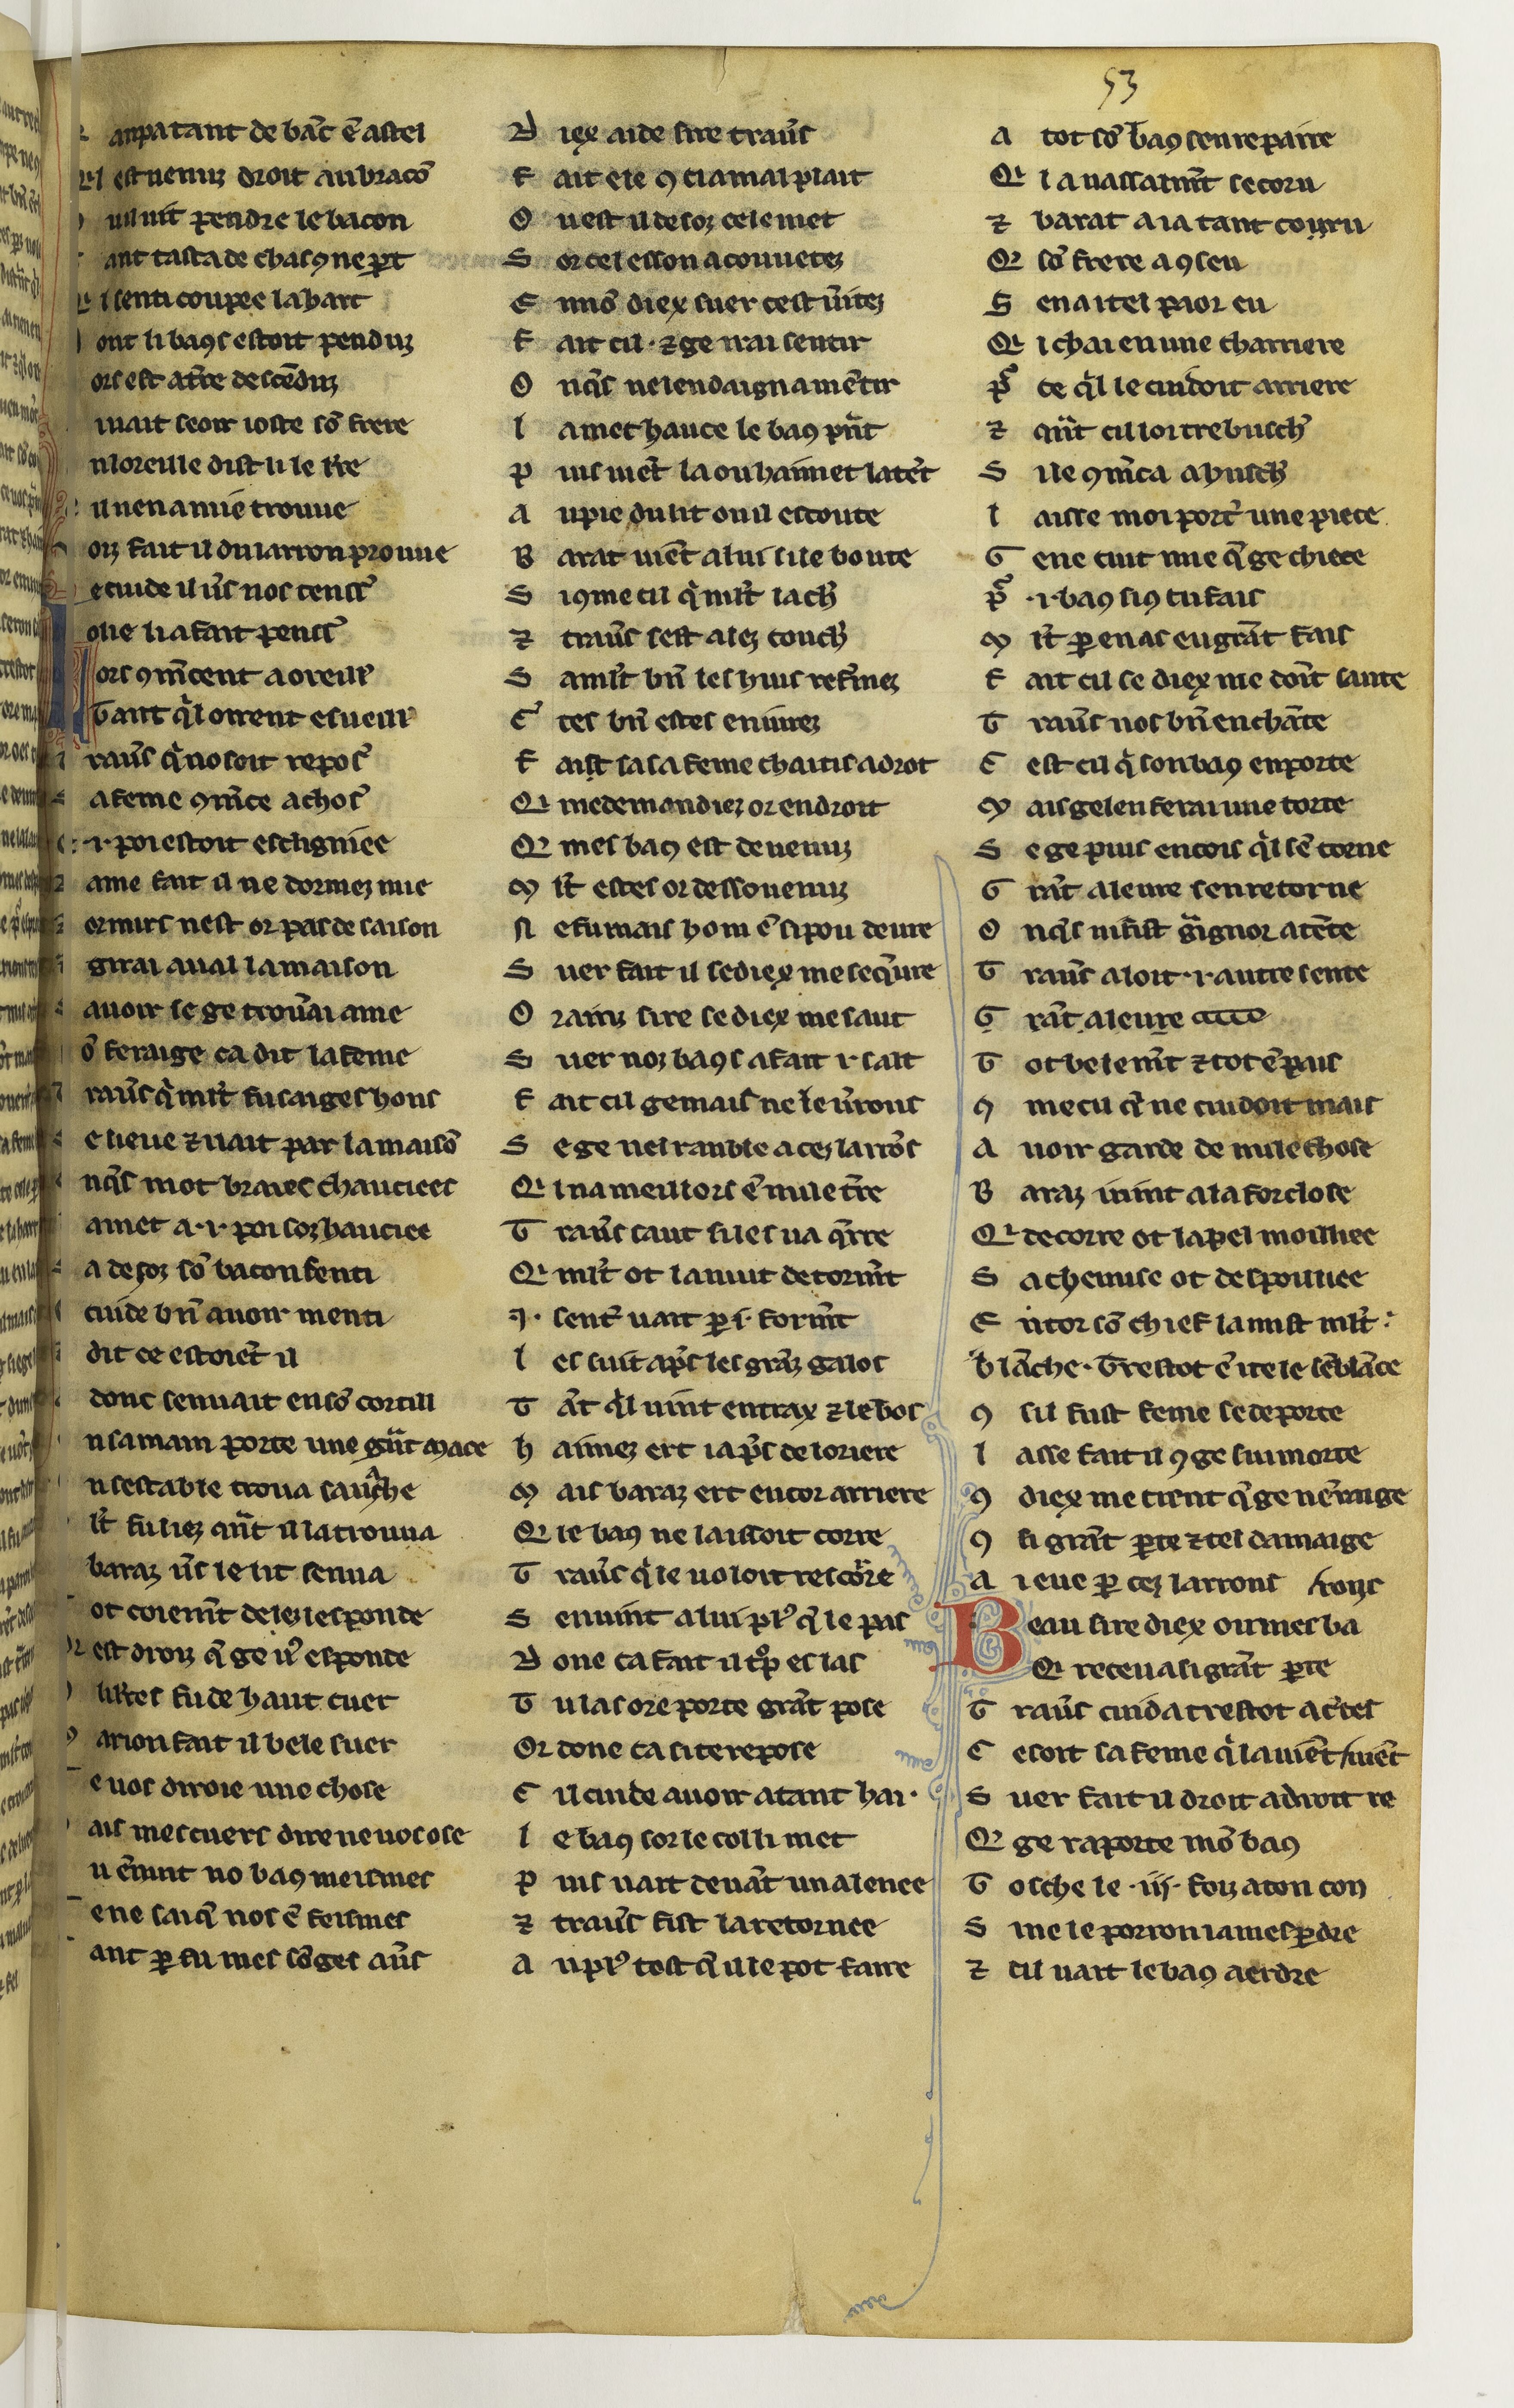 53
anpatant de bac̄ ē astel
l est uenuz droit au bracō
uil uit pendre le bacon
ant tasta de chascꝯ ne ꝑt
l senti coupee la hart
ont li baꝯs estoit penduz
ors est at̄re descēduz
uait seoir ioste sō frere
n loreille dist li le r̄re
il nen a mie trouue
orz fait il du larron prouue
e cuide il us̄ nos tenss̄
olie li a fait penss̄
ors ꝯm̄cent a oreill̄
Tant q̄l oirent esueill̄
raūs q̄ no soit repos̄
a feme ꝯm̄ce a chos̄
.i. poi estoit esclignïee
ame fait il ne dormez mie
ormirs nest or pas de saison
girai aual la maison
auoir se ge trouūai ame
ō feraige ca dit la feme
raūs q̄ ml̄t fu saiges hons
e lieue ⁊ uait par la maisō
nq̄s mot braies chauciees
amet a .i. poi soz hauciee
a desoz sō bacon senti
cuide bn̄ auoir menti
dit ce estoiēt il
donc senuait en sō cortill
n sa main porte une gn̄t mace
n lestable troua sa uache
lt̄ fu liez qn̄t il la trouua
baraz us̄ le lit senua
ot coiem̄t delez lesponde
est droiz q̄ ge u̾ esponde
li r̄res fu de haut cuer
arion fait il bele suer
e uos diroie une chose
ais mes cuers dire ne uos ose
u ēuint no baꝯ meismes
ene sai q̄ nos ē feismes
ant ꝑ fu mes sōges aūs
D iex aide sire traūs
F ait ele ꝯ ci a mal plait
O u est il desoz cele met
S or cel esson a couuetez
E nnō diex suer cest ūitez
F ait cil. ⁊ ge irai sentir
O nq̄s ne len daigna mētir
l a met hauce le baꝯ pn̄t
P uis uiēt la ou haimet latēt
A u pie du lit ou il escoute
B arat uiēt a lui si le boute
S i ꝯme cil q̄ ml̄t la ch̄
⁊ traūs sest alez couch̄
S a ml̄t bn̄ les huis refmez
C̄ tes bn̄ estes eniurez
F aist sa sa feme chaitis a drot
Q̄ me demandiez or endroit
Q̄ mes baꝯ est deuenuz
M lt̄ estes or dessouenuz
N e fu mais hom ē si pou deure
S uer fait il se diex me seq̄ure
O rainz sire se diex me saut
S uer noz baꝯs a fait .i. salt
F ait cil ge mais ne le ūrons
S e ge nel ranble a cez larrōs
Q̄ l na meillors ē nule t̄re
T raūs saut si les ua q̄rre
Q̄ ml̄t ot la nuit de torm̄t
.I. sent̄ uait ꝑ .i. form̄t
l es suit ap̄s les grāz galos
T āt q̄l uint entrax ⁊ le bos
h aimez ert ia p̄s de loriere
M ais baraz ert encor arriere
Q̄ le baꝯ ne laissoit corre
T raūs q̄ le uoloit rescorre
S en uint a lui pl̾ q̄ le pas
D one ca fait il t̄p es las
T u las ore porte grāt pose
O r done ca si te repose
C il cuide auoir atant hai.
l e baꝯ sor le col li met
P uis uait deuāt un alenee
⁊ traūs fist la retornee
A u pl̾ tost q̄ il le pot faire
A tot sō baꝯ sen repaire
Q̄ l a uassaum̄t secoru
⁊ barat a ia tant couru
Q̄ sō frere a ꝯseu
S en a itel paor eu
Q̄ i chai en une charriere
P̄ ce q̄l le cuidoit arriere
⁊ qn̄t cil loi trebusch̄
S i le ꝯm̄ca a huch̄
l aisse moi port̄ une piece
G ene cuit mie q̄ ge chiece
P̄ .i. baꝯ si ꝯ tu fais
M lt̄ ꝑ en as eu grāt fais
F ait cil se diex me doīt sante
T raūs nos bn̄ enchāte
C est cil q̄ son baꝯ enporte
M ais ge len ferai une torte
S e ge puis encois q̄l sē torne
G rāt aleure sen retorne
O nq̄s ni fist gn̄gnor atēte
T raūs aloit .i. autre sente
G rāt aleure
T ot belem̄t ⁊ tot ē pais
Ꝯ me cil q̄ ne cuidoit mais
A uoir garde de nule chose
B araz iuint a la forclose
Q̄ de corre ot la pel moilliee
S a chemise ot despoiliee
E ntor sō chief la mist ml̄t
blāche. Trestot ē itele sēblāce
Ꝯ sil fust feme se deporte
l asse fait il ꝯ ge sui morte
Ꝯ diex me tient q̄ ge nērage
Ꝯ si grāt ꝑte ⁊ tel damaige
A i eue ꝑ cez larrons rons
Beau sire diex ou mes ba
Q̄ receua si grāt ꝑte
T raūs cuida trestot ac̄tes
C e soit sa feme q̄ la uiēt uiēt
S uer fait il droit a droit re
Q̄ ge raporte mō baꝯ
T osche le .iij. foiz a ton con
S i ne le porron iames ꝑdre
⁊ cil uait le baꝯ aerdre